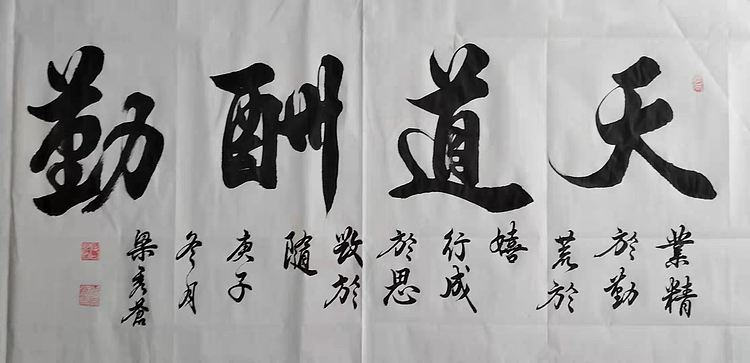 天道酬勤
業精
於勤
荒於
嬉
行成
於思
毀於
隨
庚子
冬月
梁彥蒼